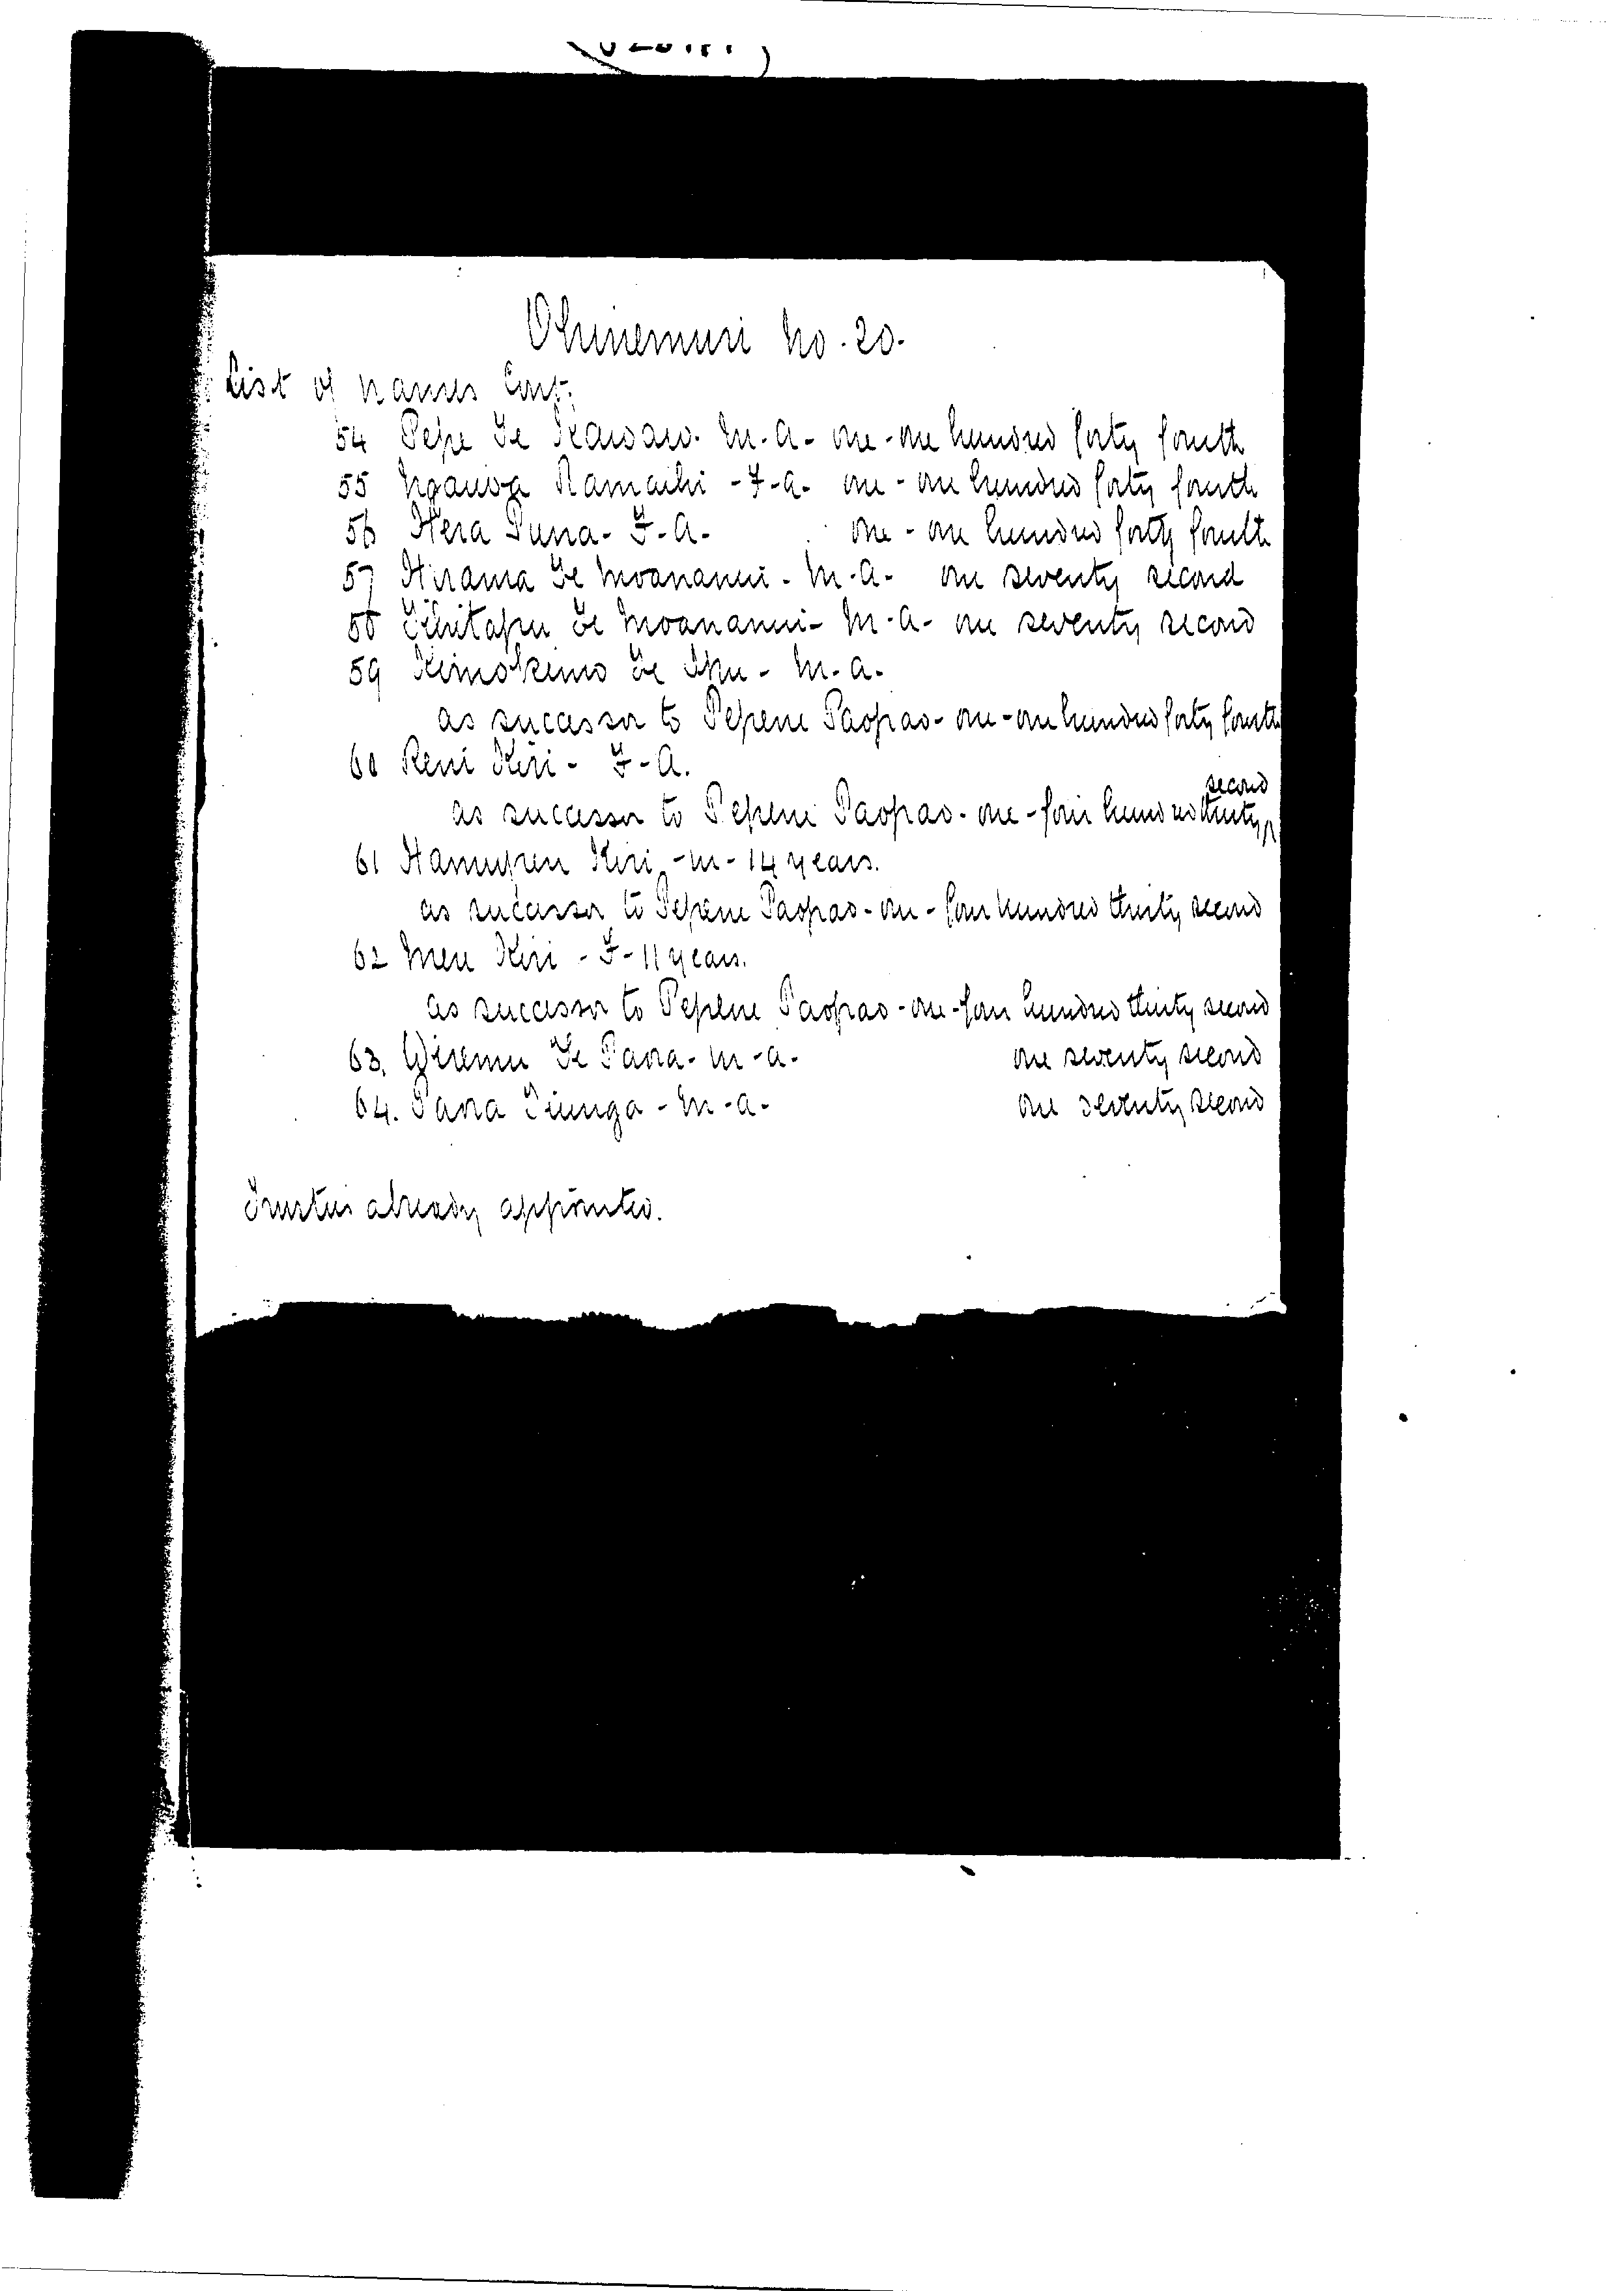 Ohinemuri No. 20.
List of names Cont.
54 Pepe Te M. A - one - one hundred forty fourth
55 Ramaihi - F - a. one - one hundred forty fourth
56 Hera Puna - F - A - one - one hundred forty fourth
57 Hirama Te Moananui - M. A - one seventy second
58 Te Moananui - M. a - one seventy second
59 Te - M. a.
as successor to Pepene Paopao - one - one hundred forty fourth
60 Reni Kiri - F - A.
as successor to Pepene Paopao - one - four hundred thirty second
61 Kiri - m - 14 years.
as successor to Pepene Paopao - one - four hundred thirty second
62 Mere Kiri - F - 11 years.
as successor to Pepene Paopao - one - four hundred thirty second
63. Wiremu Te Pana - m - a - one seventy second
64. Pana - M - a - one seventy second
Trustees already appointed.